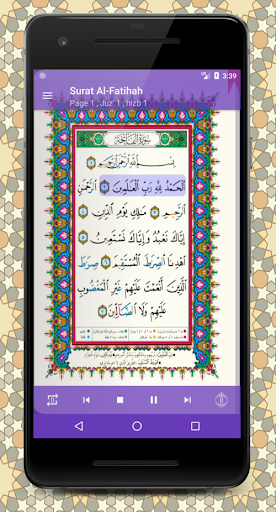 3:39
Surat Al-Fatihah
Page 1 , Juz' 1 , hizb 1
سُورَةُ الفَاتِحَةِ
بِسْمِ اللَّهِ الرَّحْمَٰنِ الرَّحِيمِ ١
الْحَمْدُ لِلَّهِ رَبِّ الْعَالَمِينَ ٢ الرَّحْمَٰنِ
الرَّحِيمِ ٣ مَالِكِ يَوْمِ الدِّينِ ٤
إِيَّاكَ نَعْبُدُ وَإِيَّاكَ نَسْتَعِينُ ٥
اهْدِنَا الصِّرَاطَ الْمُسْتَقِيمَ ٦ صِرَاطَ
الَّذِينَ أَنْعَمْتَ عَلَيْهِمْ غَيْرِ الْمَغْضُوبِ
عَلَيْهِمْ وَلَا الضَّالِّينَ ٧